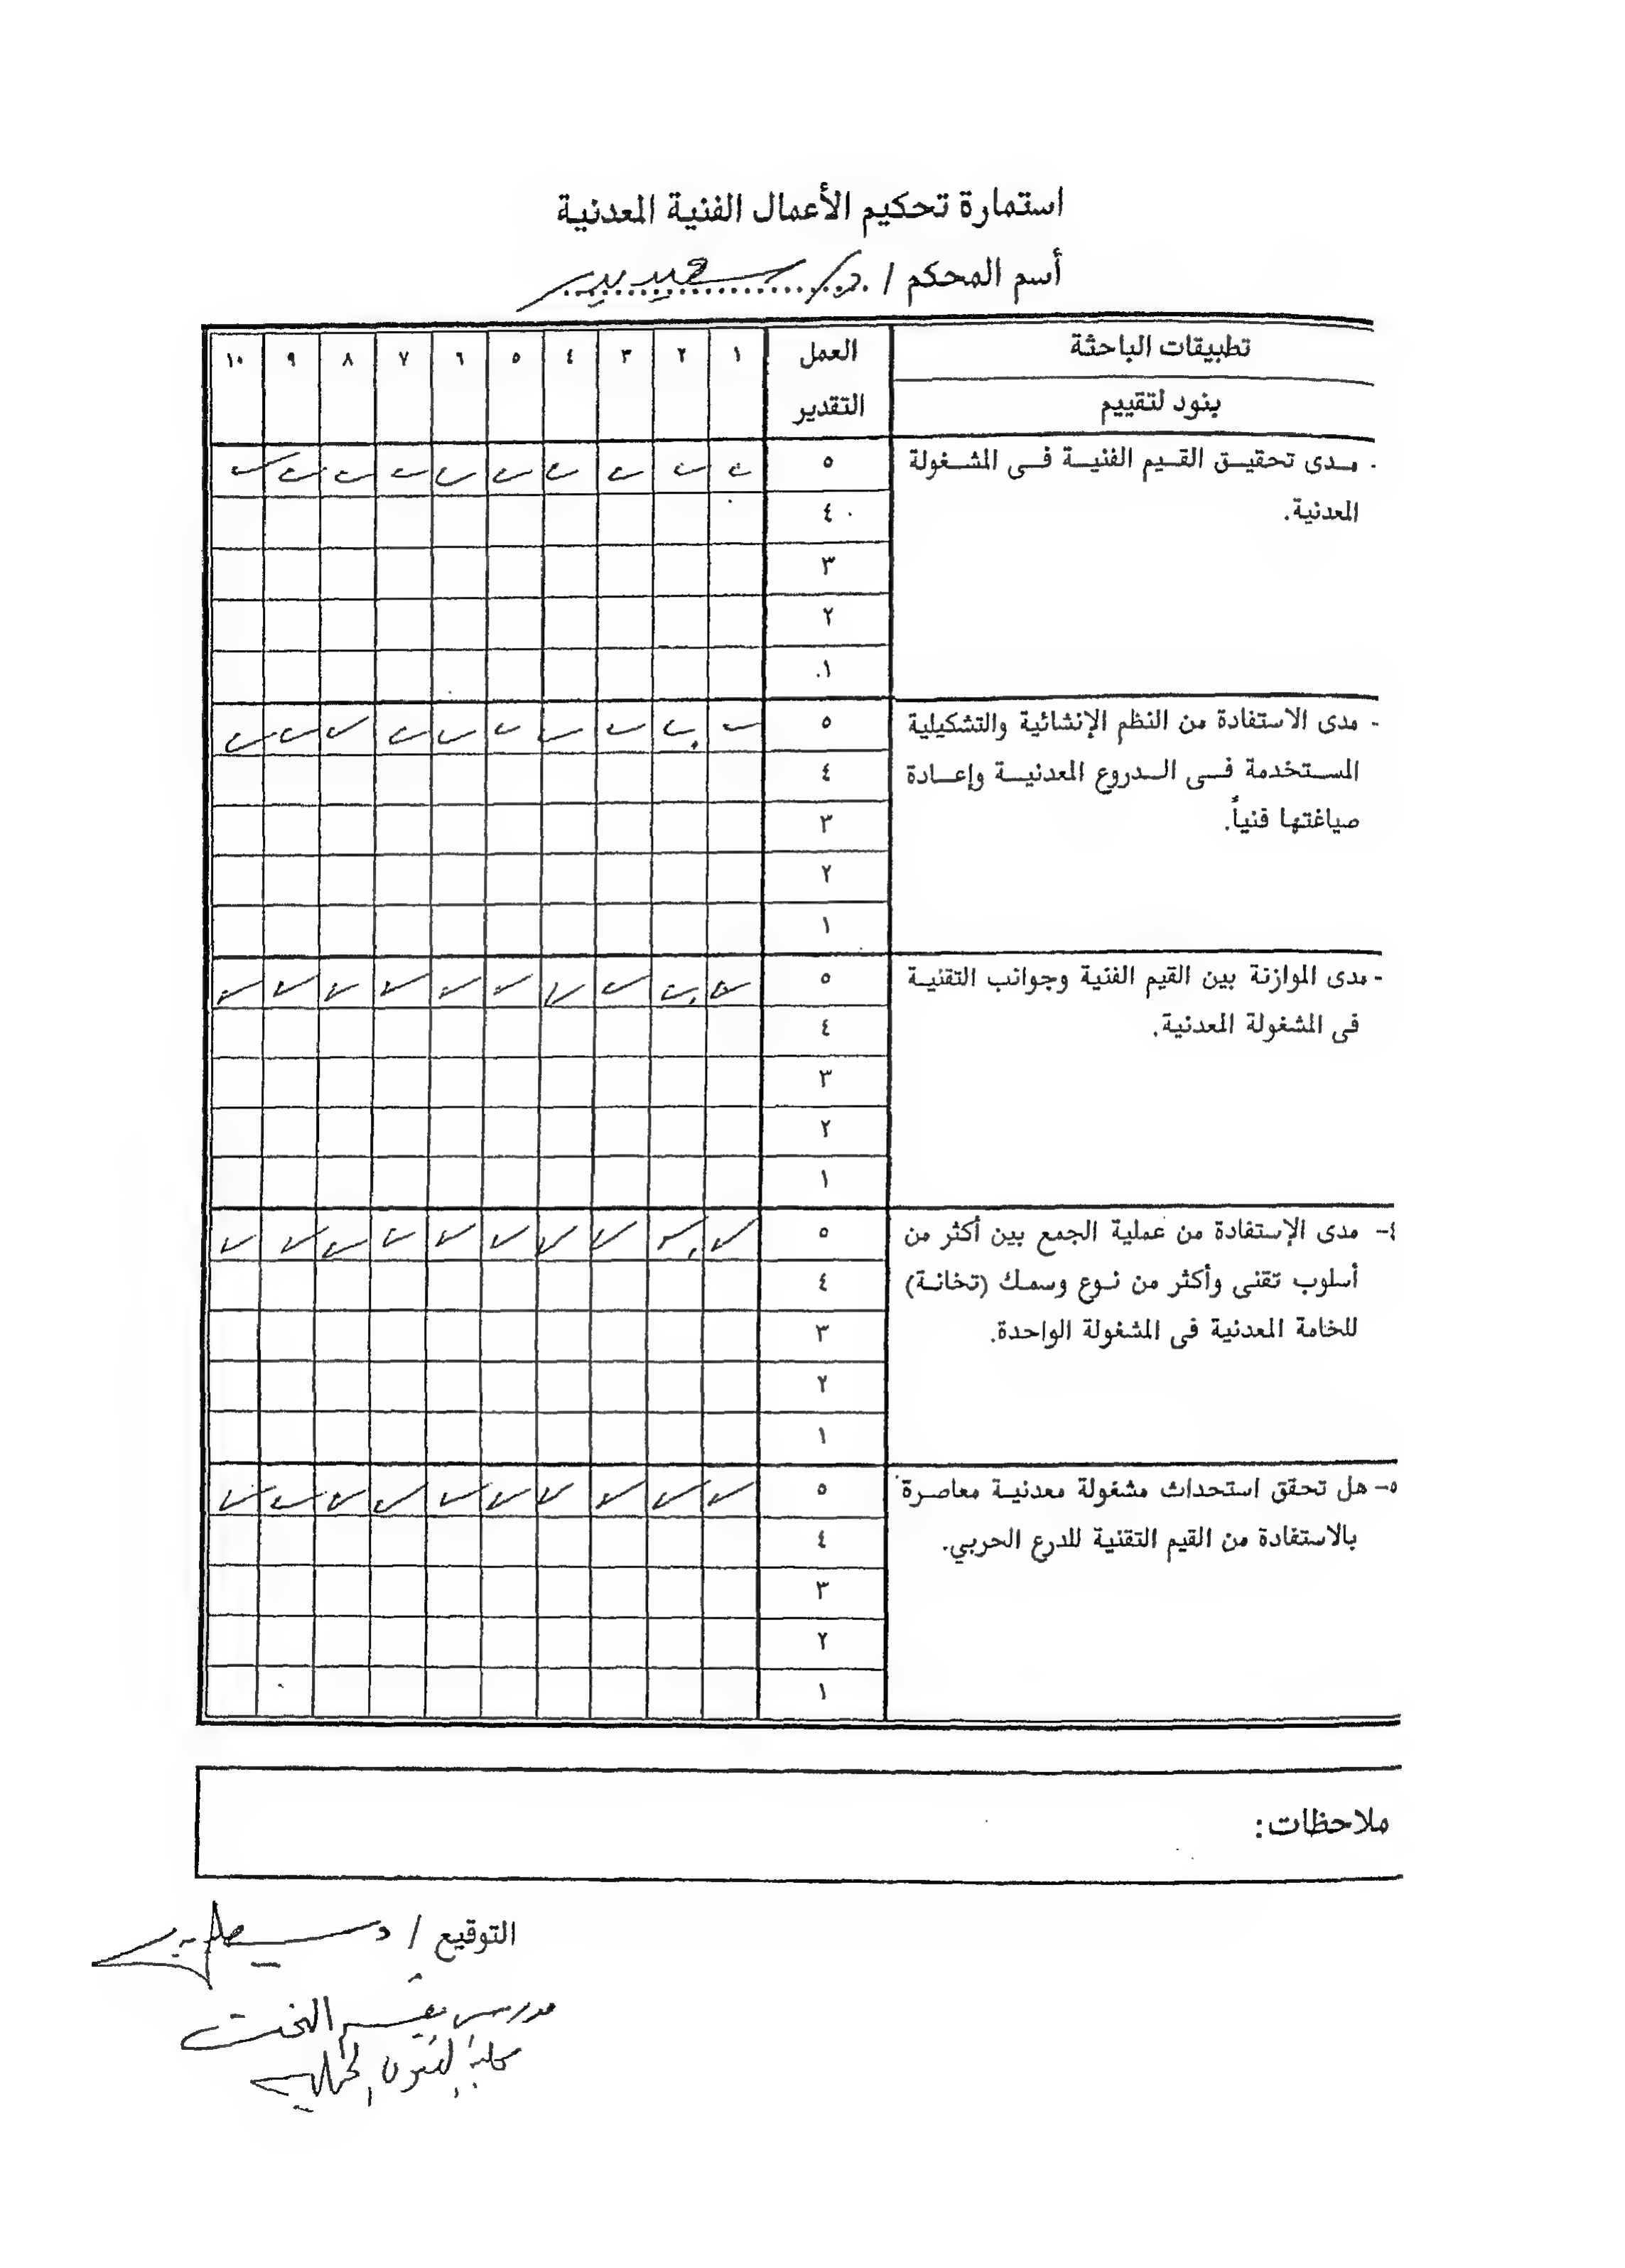 استمارة تحكيم الأعمال الفنية المعدنية
أسم المحكم / د/ سعيد بدر
تطبيقات الباحثة العمل ١ ٢ ٣ ٤ ٥ ٦ ٧ ٨ ٩ ١٠
بنود لتقييم التقدير
مدى تحقيق القيم الفنية فى المشغولة ٥ ✓ ✓ ✓ ✓ ✓ ✓ ✓ ✓ ✓ ✓
المعدنية. ٤
٣
٢
١
- مدى الاستفادة من النظم الإنشائية والتشكيلية ٥ ✓ ✓ ✓ ✓ ✓ ✓ ✓ ✓ ✓ ✓
المستخدمة فى الدروع المعدنية وإعادة ٤
صياغتها فنياً. ٣
٢
١
- مدى الموازنة بين القيم الفنية وجوانب التقنية ٥ ✓ ✓ ✓ ✓ ✓ ✓ ✓ ✓ ✓ ✓
فى المشغولة المعدنية. ٤
٣
٢
١
٤- مدى الإستفادة من عملية الجمع بين أكثر من ٥ ✓ ✓ ✓ ✓ ✓ ✓ ✓ ✓ ✓ ✓
أسلوب تقنى وأكثر من نوع وسمك (تخانة) ٤
للخامة المعدنية فى المشغولة الواحدة. ٣
٢
١
٥- هل تحقق استحداث مشغولة معدنية معاصرة ٥ ✓ ✓ ✓ ✓ ✓ ✓ ✓ ✓ ✓ ✓
بالاستفادة من القيم التقنية للدرع الحربي. ٤
٣
٢
١
ملاحظات:
التوقيع / د
مدرس بقسم النحت
كلية الفنون الجميلة